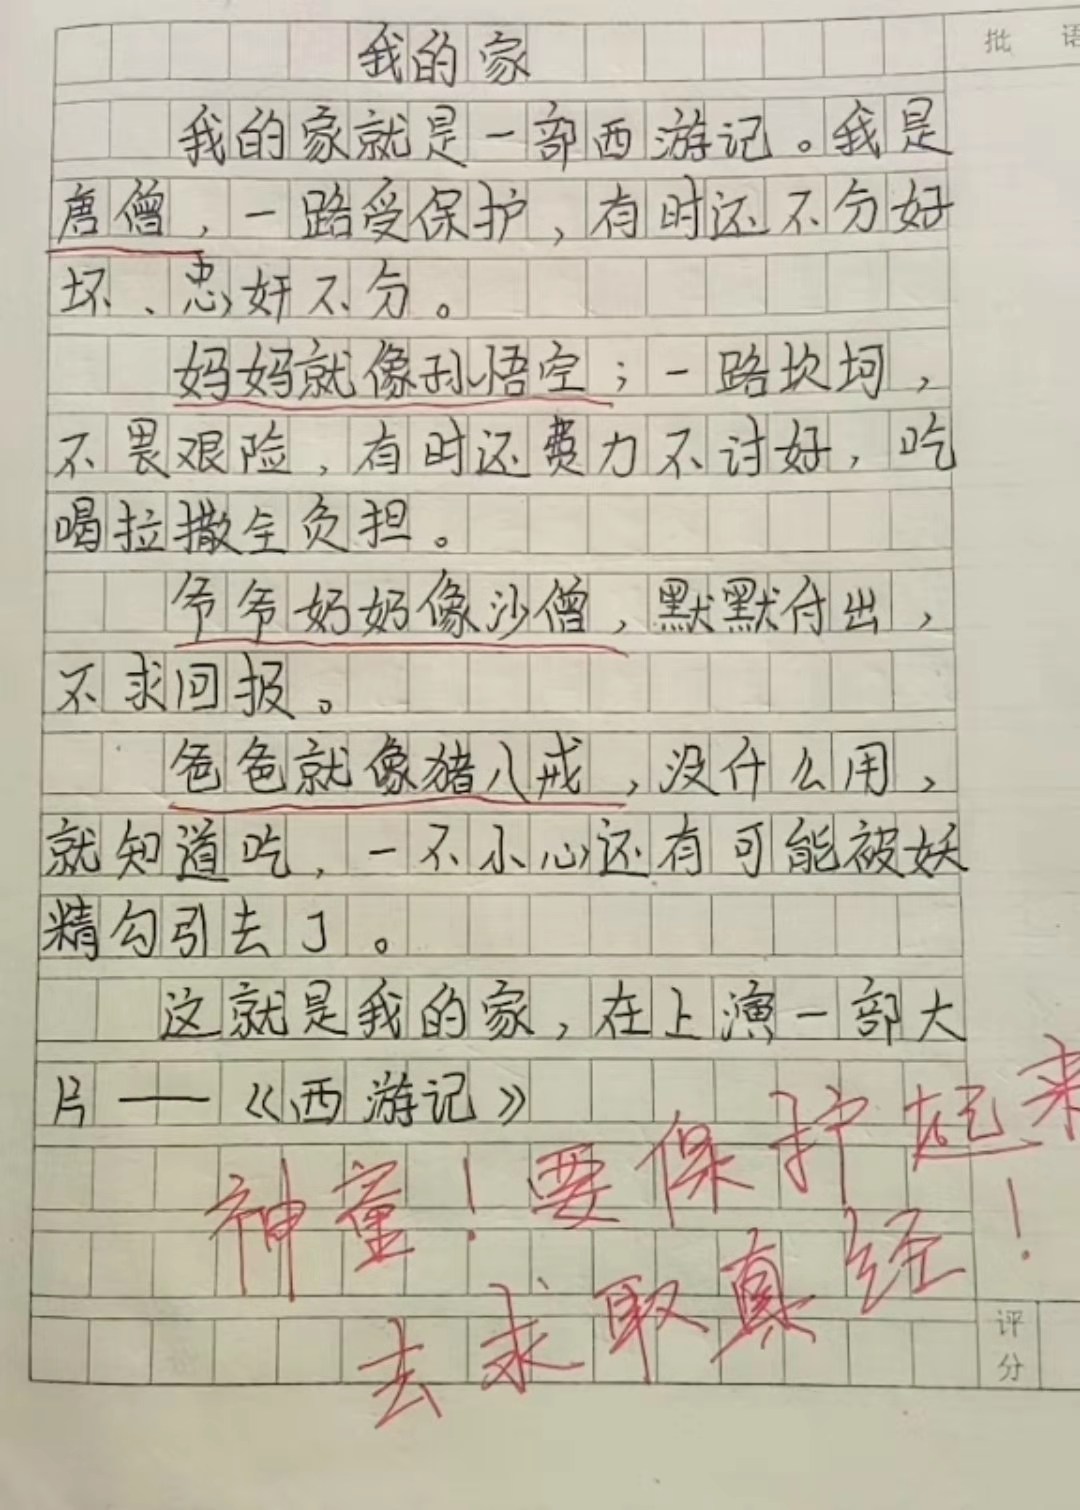 我的家
批 语
我的家就是一部西游记。我是
唐僧，一路受保护，有时还不分好
坏、忠奸不分。
妈妈就像孙悟空；一路坎坷，
不畏艰险，有时还费力不讨好，吃
喝拉撒全负担。
爷爷奶奶像沙僧，默默付出，
不求回报。
爸爸就像猪八戒，没什么用，
就知道吃，一不小心还有可能被妖
精勾引去了。
这就是我的家，在上演一部大
片——《西游记》
神童！要保护起来！
去求取真经
评
分